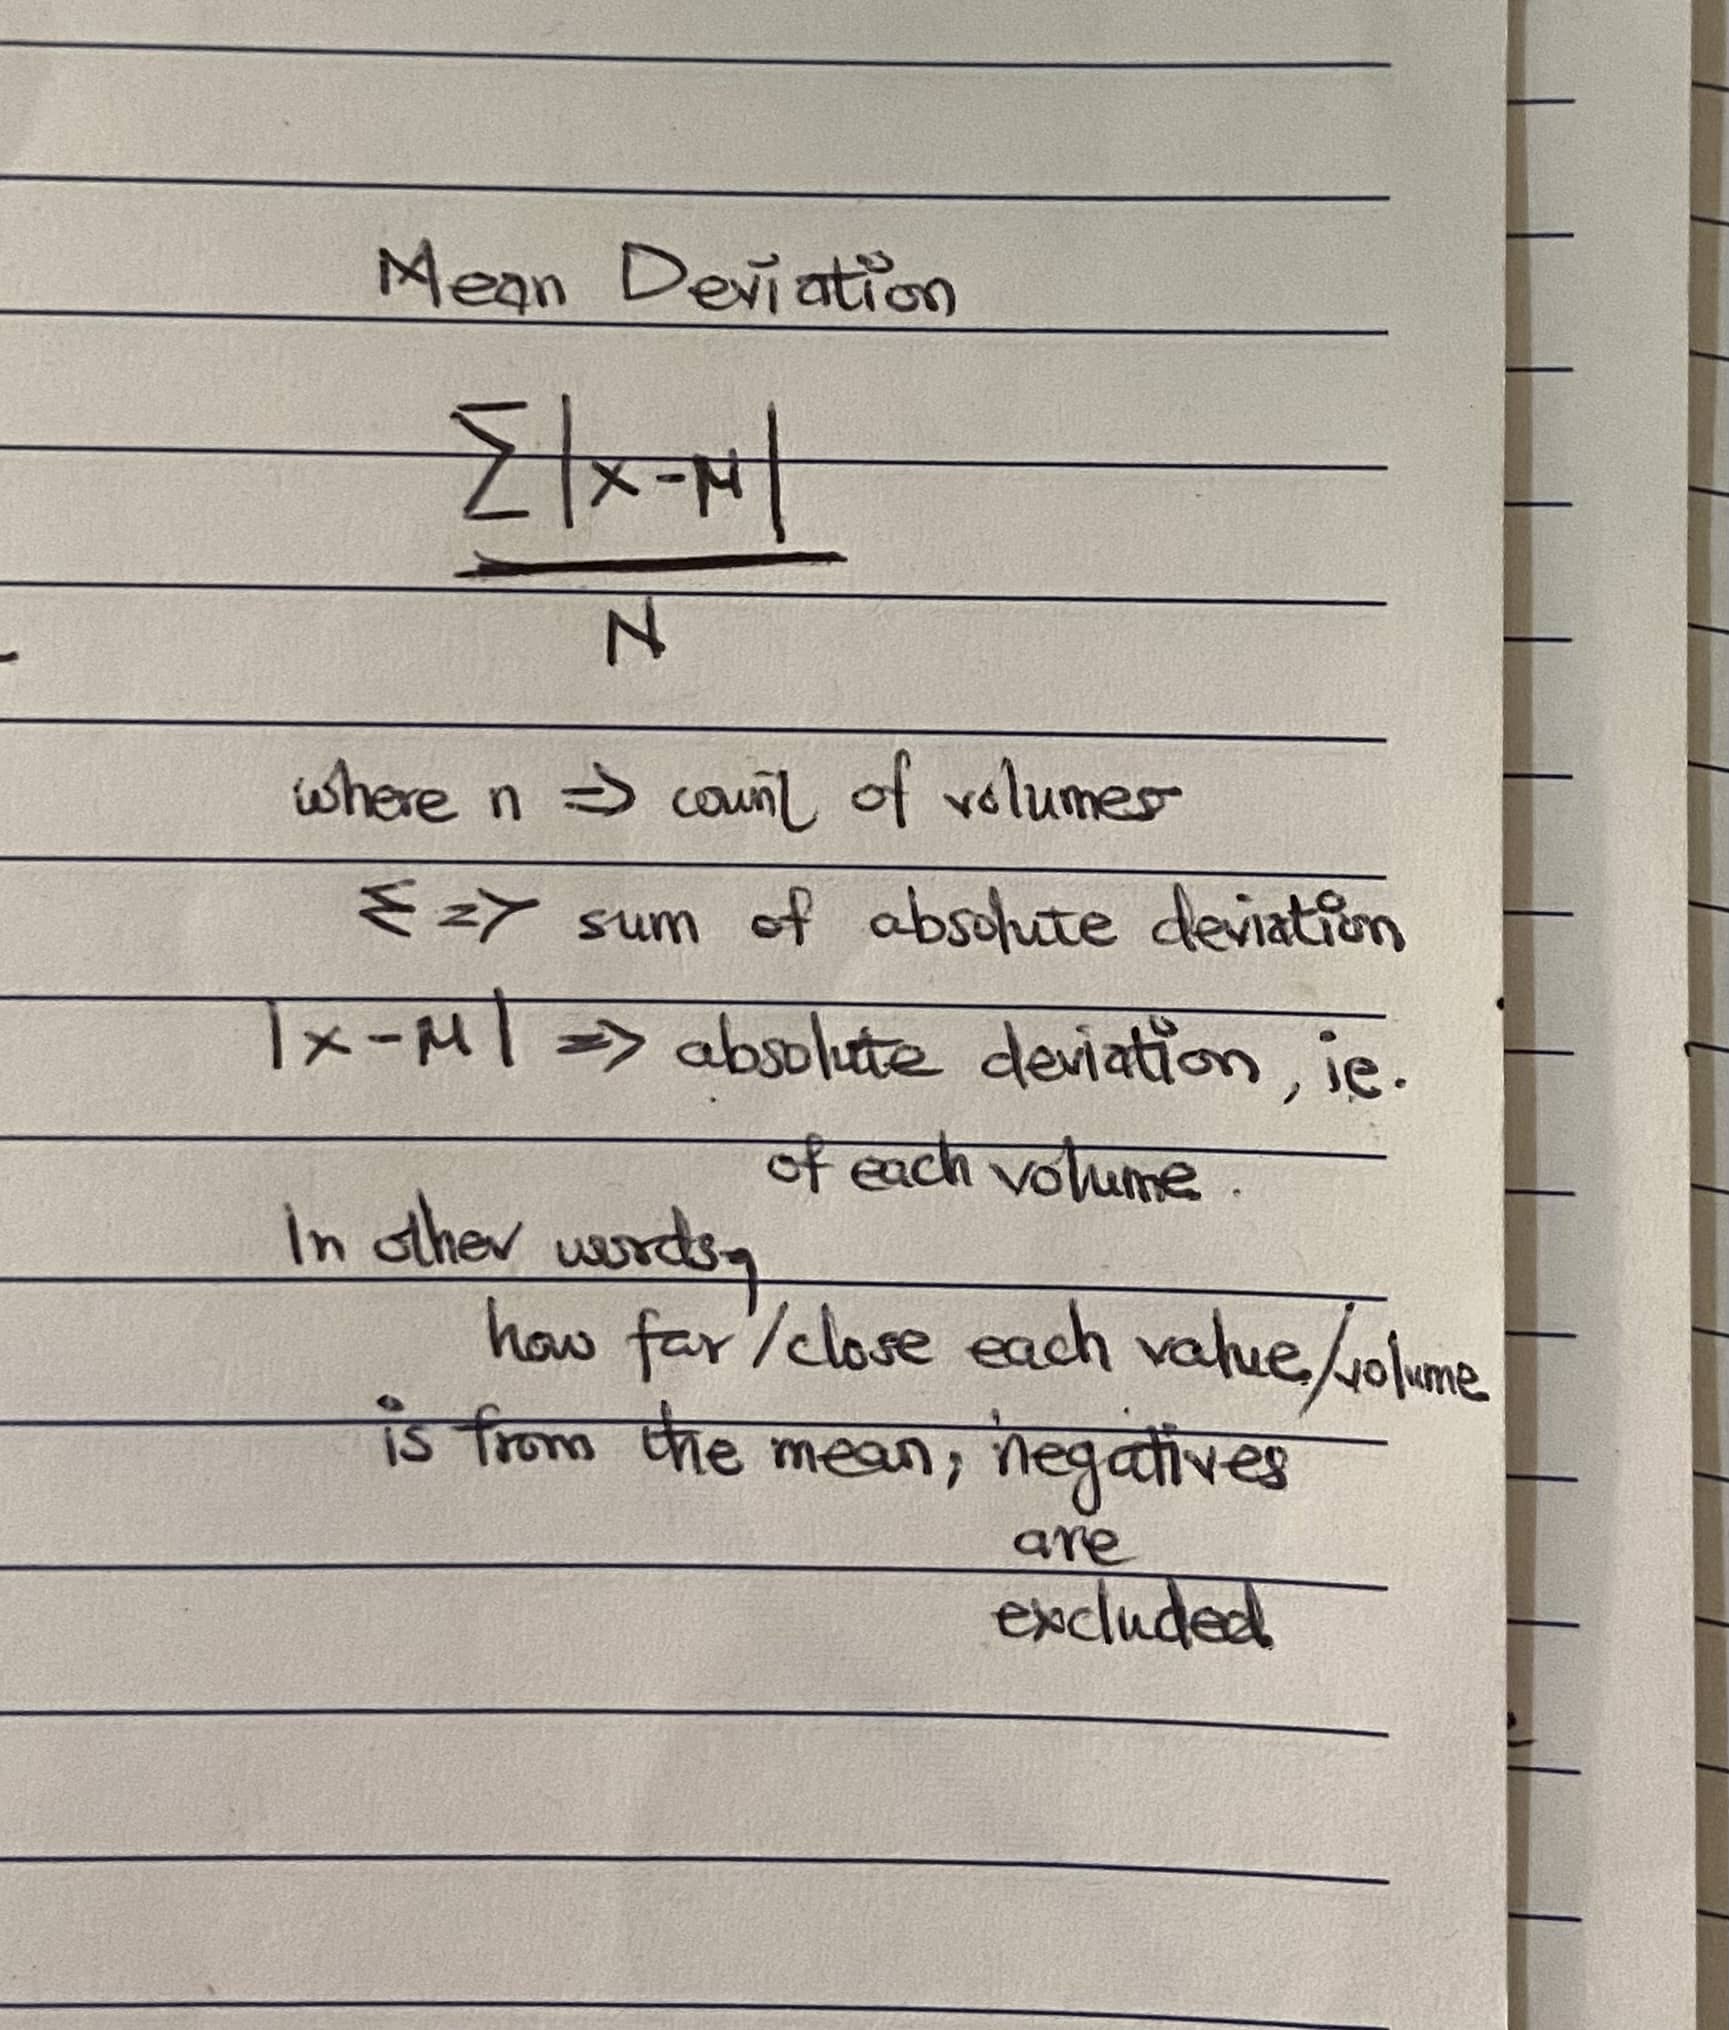 Mean Deviation
Σ|x-μ|
N
where n => count of volumes
Σ => sum of absolute deviation
|x-μ| => absolute deviation, ie.
of each volume.
In other words,
how far/close each value/volume
is from the mean, negatives
are
excluded